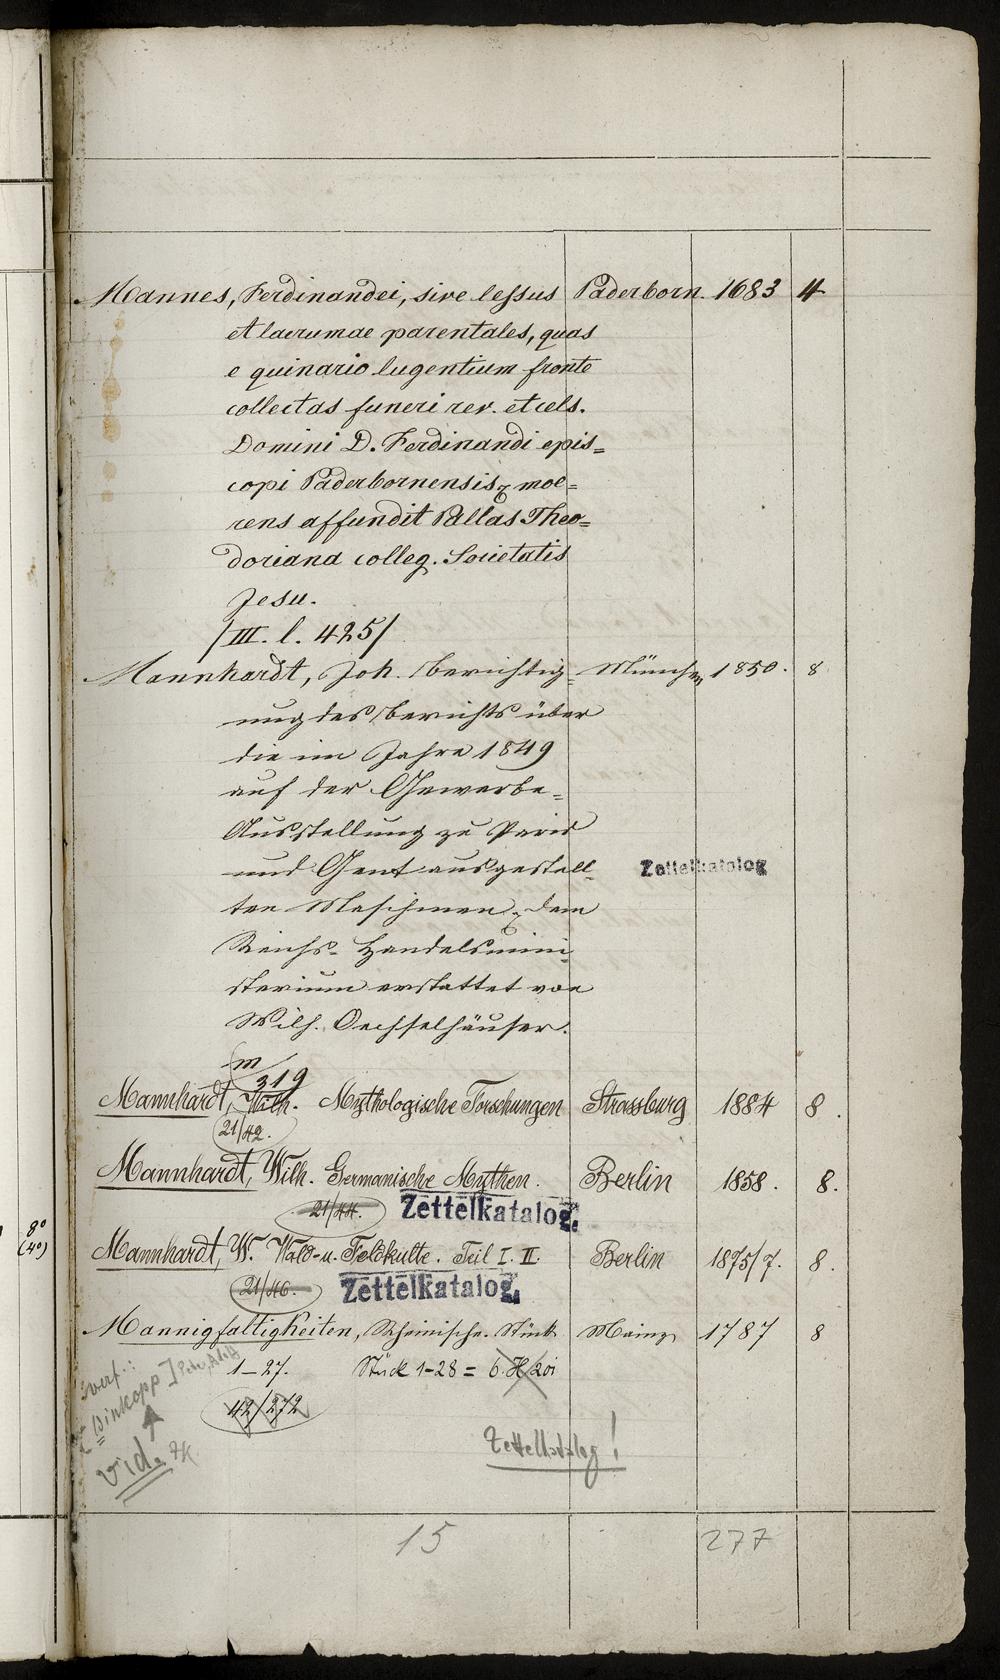 Mannes, Ferdinandei, sive lessus Paderborn. 1683 4
et lacrumae parentales, quas
e quinario lugentium fronte
collectas funeri rev. et cels.
Domini D. Ferdinandi epis=
copi Paderbornensis, moe=
rens affundit Pallas Theo=
doriana colleg. Societatis
Jesu.
/III. l. 425/
Mannhardt, Joh. Berichtig= München 1850. 8
ung des Berichts über
die im Jahre 1849
auf der Gewerbe-
Ausstellung zu Paris
und Gent ausgestell-
Zettelkatalog
ten Maschinen, dem
Reichs-Handelsmini-
sterium erstattet von
Wilh. Oechselhäuser.
m
319
Mannhardt, Wilh. Mythologische Forschungen Strassburg 1884 8.
21/42.
Mannhardt, Wilh. Germanische Mythen. Berlin 1858. 8.
21/44. Zettelkatalog.
8°
(4°)
Mannhardt, W. Wald- u. Feldkulte. Teil I. II. Berlin 1875/7. 8.
21/46. Zettelkatalog.
Mannigfaltigkeiten, Rheinische. Stück Mainz 1787 8
1-27. Stück 1-28 = 6. H 201
42/272
Verf.:
[Winkopp] Peter Adolf
vid.
Zettelkatalog!
15 277